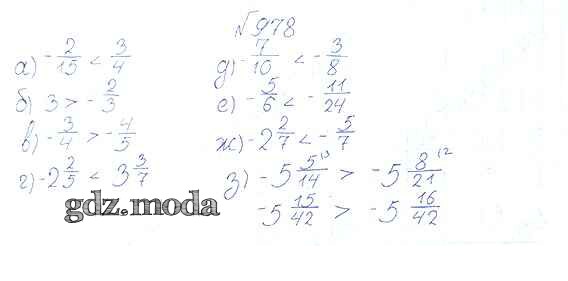 №978
а) -2/15 < 3/4
б) 3 > -2/3
в) -3/4 > -4/5
г) -2 2/5 < 3 3/7
д) -7/10 < -3/8
е) -5/6 < -11/24
ж) -2 2/7 < -5/7
з) -5 5/14 |3 > -5 8/21 |2
-5 15/42 > -5 16/42
gdz.moda